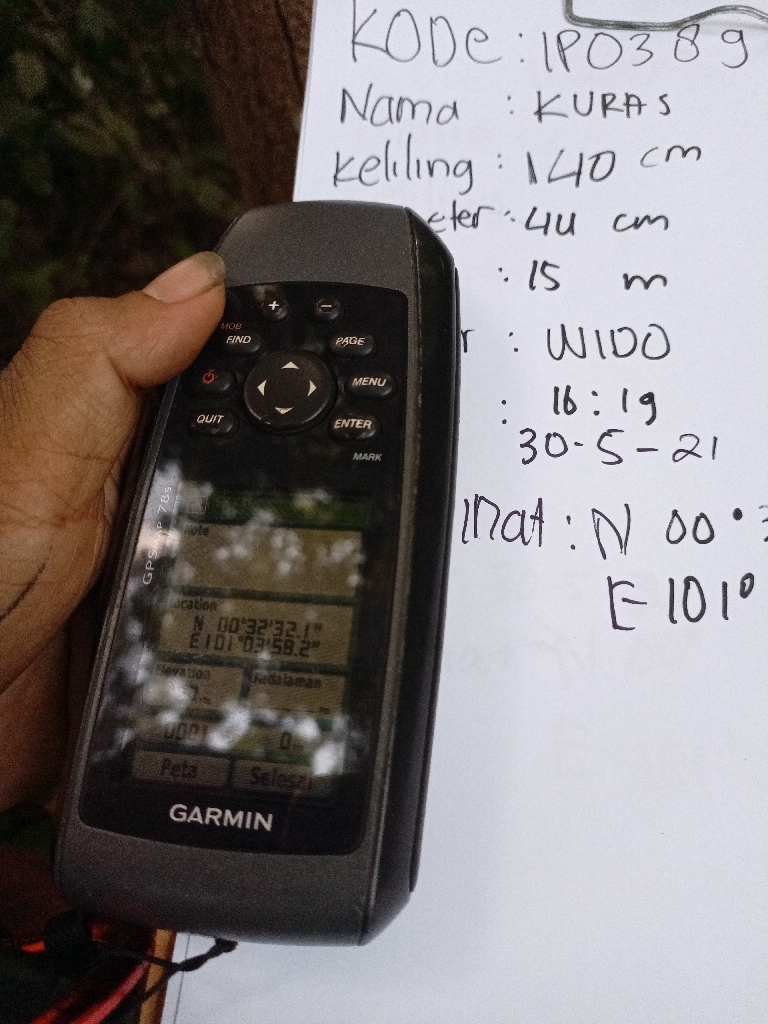 KODe : IP0389
Nama : KURAS
Keliling : 140 cm
eter : 44 cm
: 15 m
r : WIDO
: 16 : 19
30-5-21
inat : N 00°
E 101°
+ −
MOB
FIND PAGE
MENU
QUIT ENTER
MARK
GPSMAP 78s
Note
Location
N 00°32'32.1"
E101°03'58.2"
Elevation Kedalaman
Peta Selesai
GARMIN